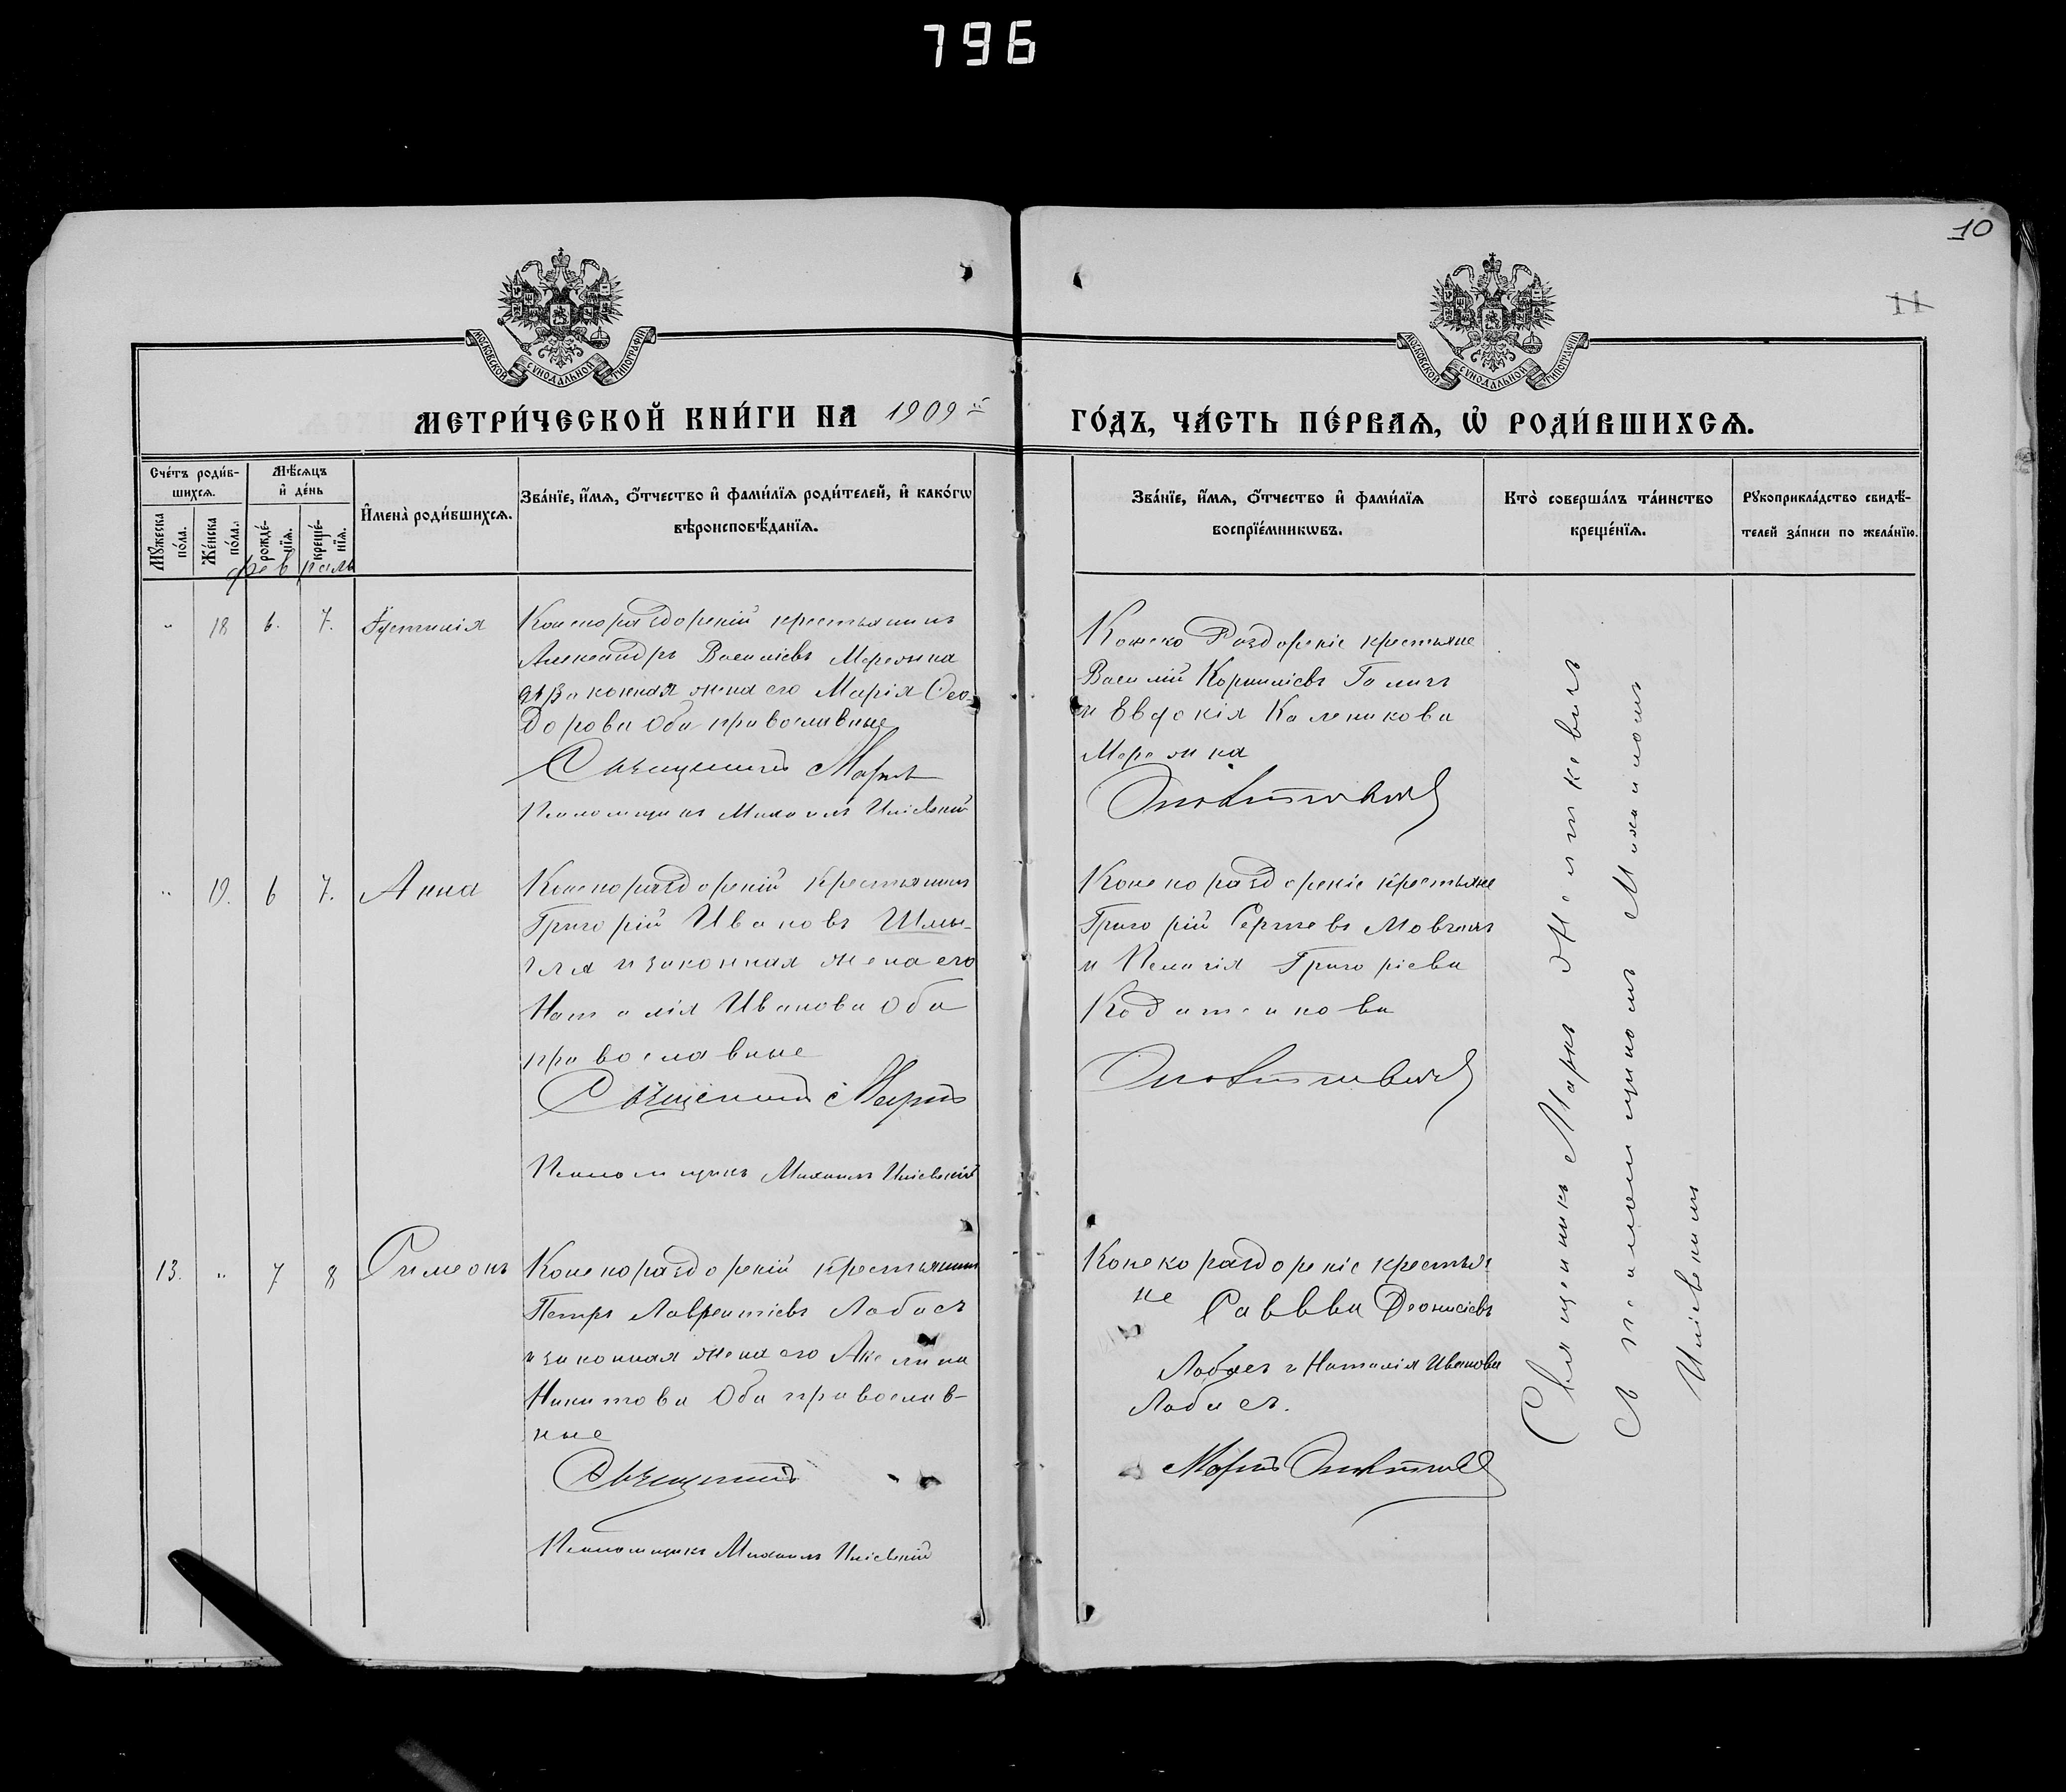 796
10
11
МОСКОВСКОЙ СѴНОДАЛЬНОЙ ТИПОГРАФІИ
МОСКОВСКОЙ СѴНОДАЛЬНОЙ ТИПОГРАФІИ
МЕТРИ́ЧЕСКОЙ КНИ́ГИ НА 1909 й
ГО́ДЪ, ЧА́СТЬ ПЕ́РВАѦ, Ѡ҆ РОДИ́ВШИХСѦ.
Сче́тъ роди́в-
шихсѧ.
Мꙋ́жеска по́ла.
Же́нска по́ла.
Мѣ́сѧцъ
и҆ де́нь
рожде́-
нїѧ.
креще́-
нїѧ.
И҆мена̀ роди́вшихсѧ.
Зва́нїе, и҆́мѧ, ѻ҆́тчество и҆ фами́лїѧ роди́телей, и҆ како́гѡ
вѣроисповѣ́данїѧ.
Зва́нїе, и҆́мѧ, ѻ҆́тчество и҆ фами́лїѧ
воспрїе́мникѡвъ.
Кто̀ соверша́лъ та́инство
креще́нїѧ.
Рꙋкоприкла́дство свидѣ́-
телей за́писи по жела́нїю.
февраль
" 18 6. 7. Іустинія
Конскораздорскій крестьянинъ
Александръ Василіевъ Мережка
и законная жена его Марія Ѳео-
дорова Оба православные
Священникъ Маркъ
Псаломщикъ Михаилъ Илієвскій
Конско Раздорскіе крестьяне
Василій Корниліевъ Галичъ
и Евдокія Каленикова
Мережка
" 19. 6 7. Анна
Конскораздорскій крестьянинъ
Григорій Ивановъ Шмы-
гля и законная жена его
Наталія Иванова Оба
православные
Священникъ Маркъ
Псаломщикъ Михаилъ Илієвскій
Конскораздорскіе крестьяне
Григорій Сергіевъ Мовчанъ
и Пелагія Григоріева
13. " 7 8 Симеонъ
Конскораздорскій крестьянинъ
Петръ Лаврентіевъ Лобасъ
и законная жена его Акелина
Никитова Оба православ-
ные
Священникъ
Псаломщикъ Михаилъ Илієвскій
Конскораздорскіе крестья-
не Саввва Деонисіевъ
Лобасъ и Наталія Иванова
Лобасъ.
Маркъ
Священникъ Маркъ
съ псаломщикомъ Михаиломъ
Илієвскимъ